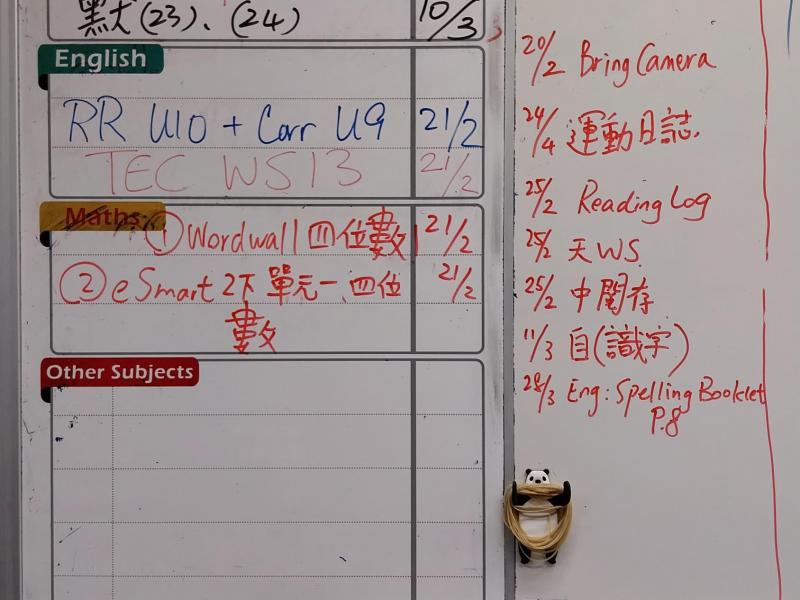 默大(23)、(24) 10/3
English
RR U10 + Corr U9 21/2
TEC WS13 21/2
Maths
① Wordwall 四位數 21/2
② eSmart 2下 單元一、四位 21/2
數
Other Subjects
20/2 Bring Camera
24/4 運動日誌.
25/2 Reading Log
25/2 天WS
25/2 中閱存
11/3 自(識字)
28/3 Eng: Spelling Booklet
P.8